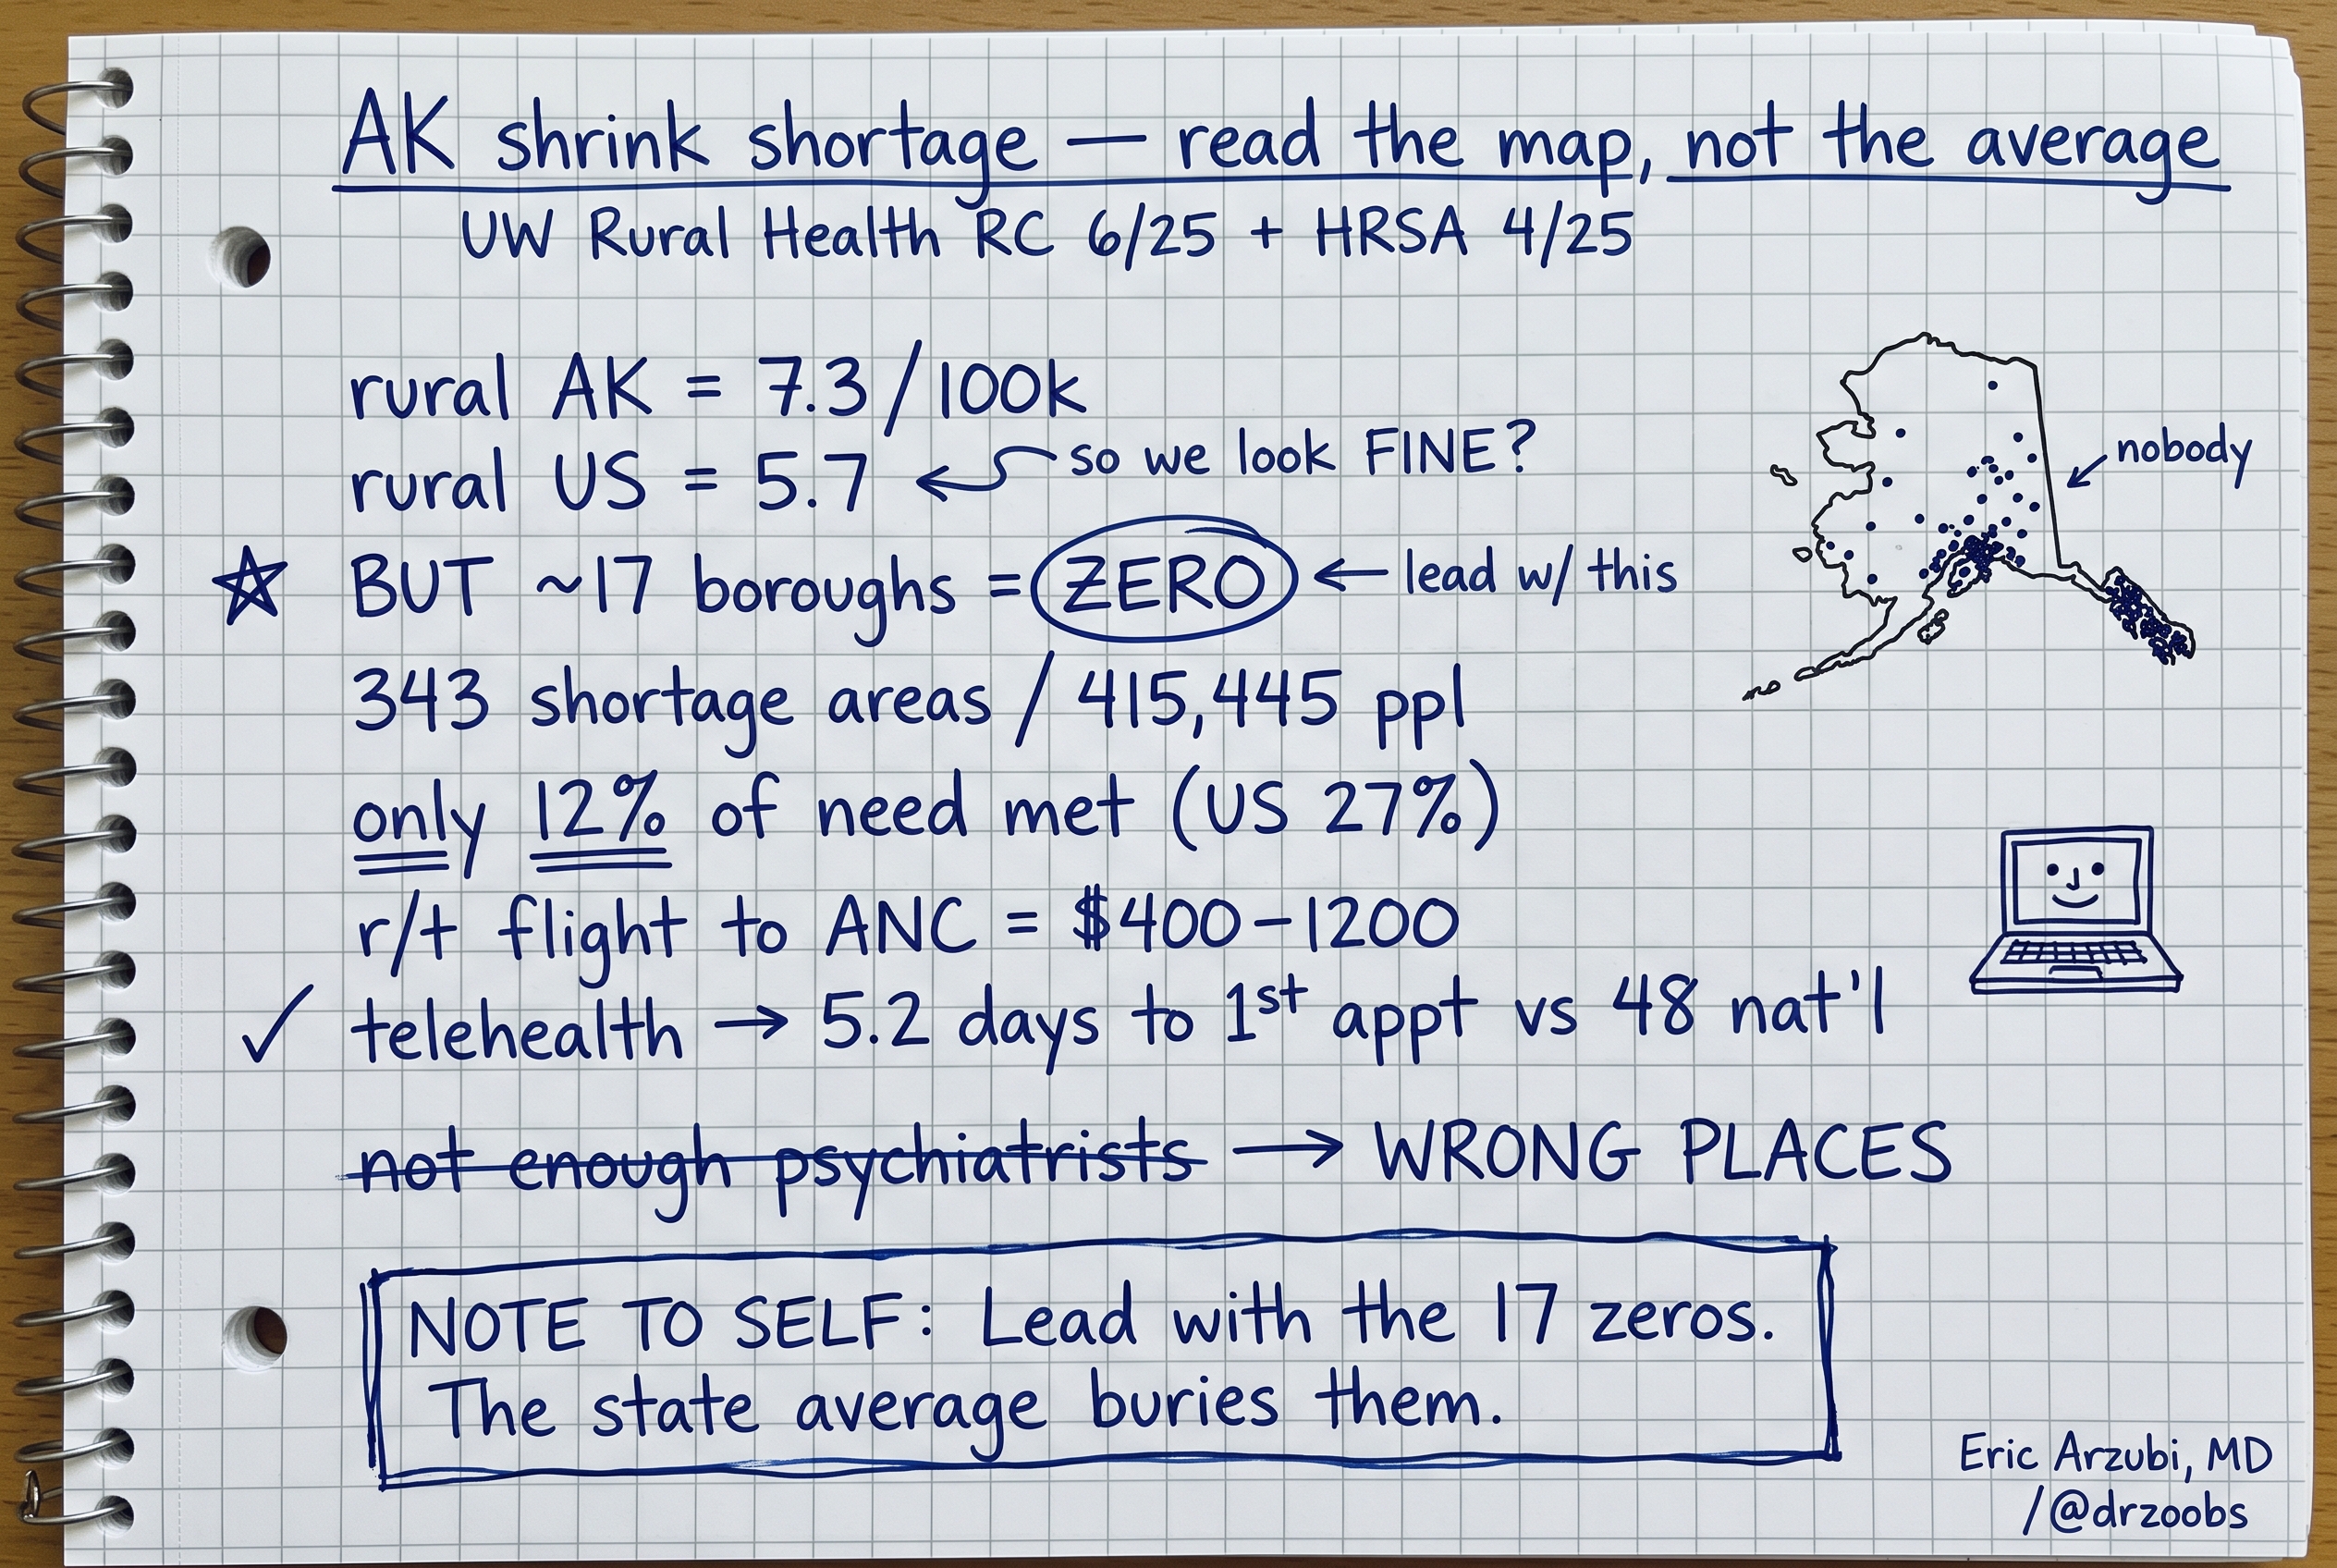 AK shrink shortage — read the map, not the average
UW Rural Health RC 6/25 + HRSA 4/25
rural AK = 7.3/100k
rural US = 5.7 ← so we look FINE?
☆ BUT ~17 boroughs = ZERO ← lead w/ this
nobody
343 shortage areas / 415,445 ppl
only 12% of need met (US 27%)
r/t flight to ANC = $400-1200
✓ telehealth → 5.2 days to 1st appt vs 48 nat'l
not enough psychiatrists → WRONG PLACES
NOTE TO SELF: Lead with the 17 zeros.
The state average buries them.
Eric Arzubi, MD
/@drzoobs